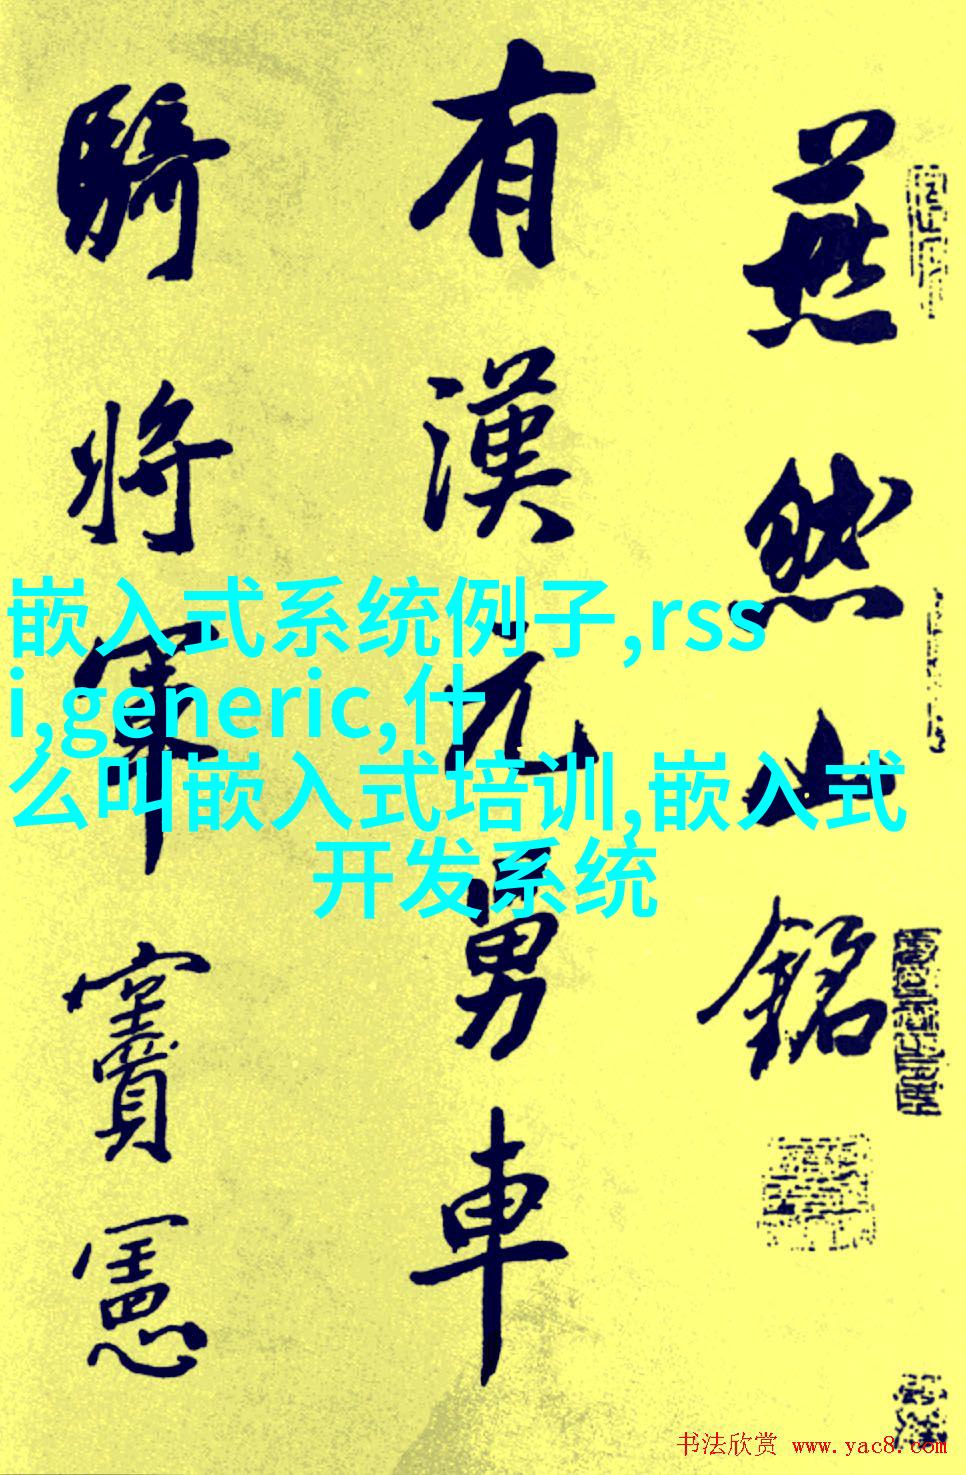 燕然山銘
有漢元舅車
騎將軍竇憲
嵌入式系统例子,rss
i,generic,什
么叫嵌入式培训,嵌入式
开发系统
书法欣赏 www.yac8.com